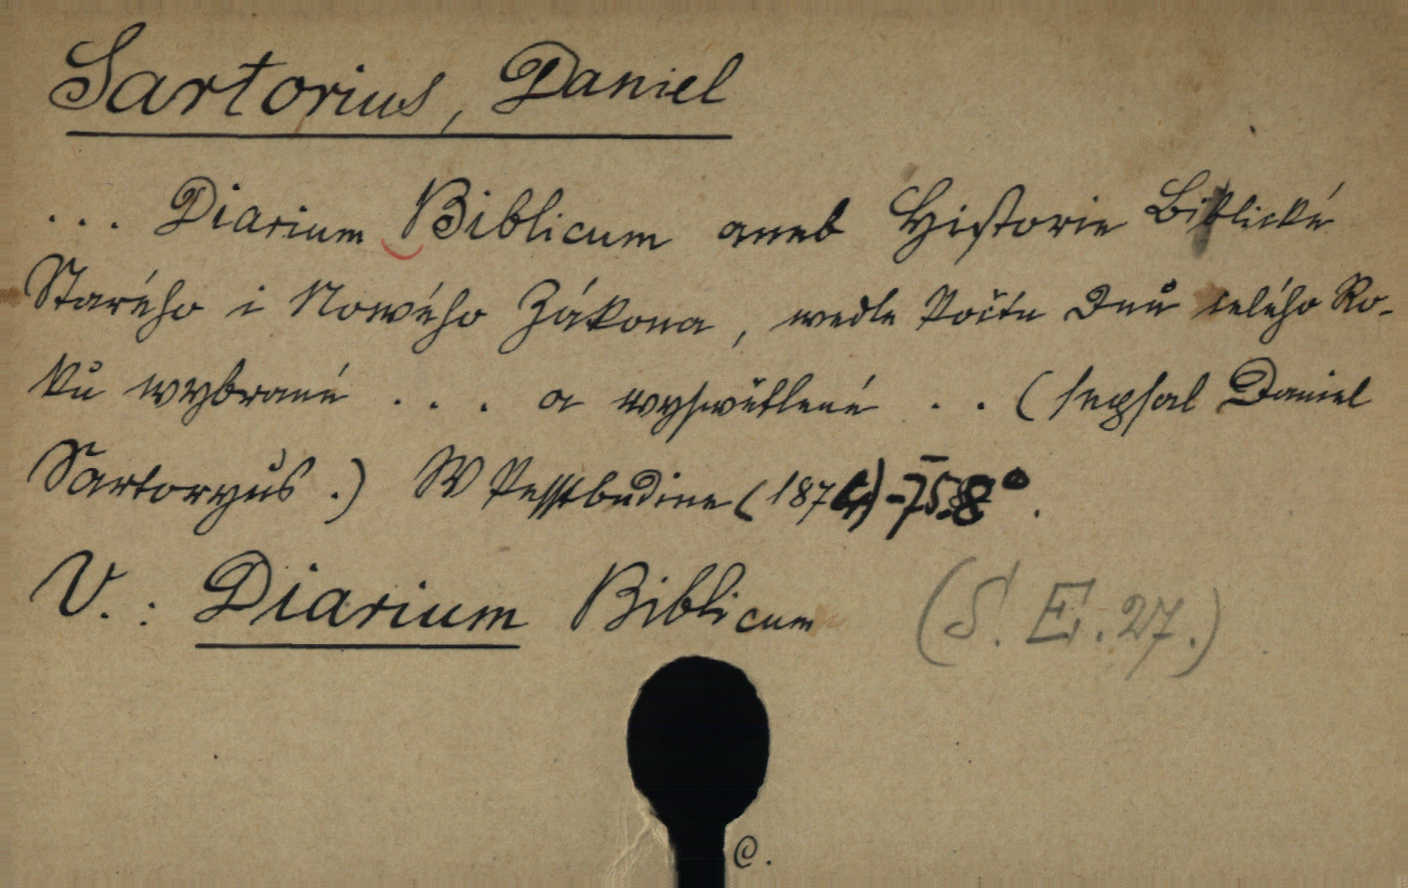 Sartorius, Daniel
... Diarium Biblicum aneb Historie Biblické
Starého i Nowého Zákona, wedle Počtu Dnů celého Ro-
ků wybrané ... a wyswětlené .. (sepsal Daniel
Sartoryus.) W Pesstbudíne (1874)-75. 8°.
V.: Diarium Biblicum (S. E. 27.)
C.